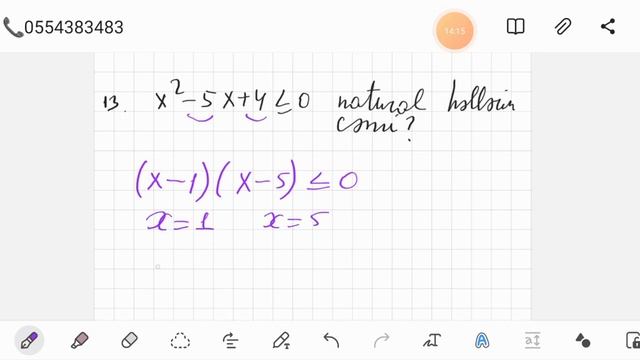 0554383483
14:15
13. x² - 5x + 4 ≤ 0 natural həllərin
cəmi?
(x - 1)(x - 5) ≤ 0
x = 1 x = 5